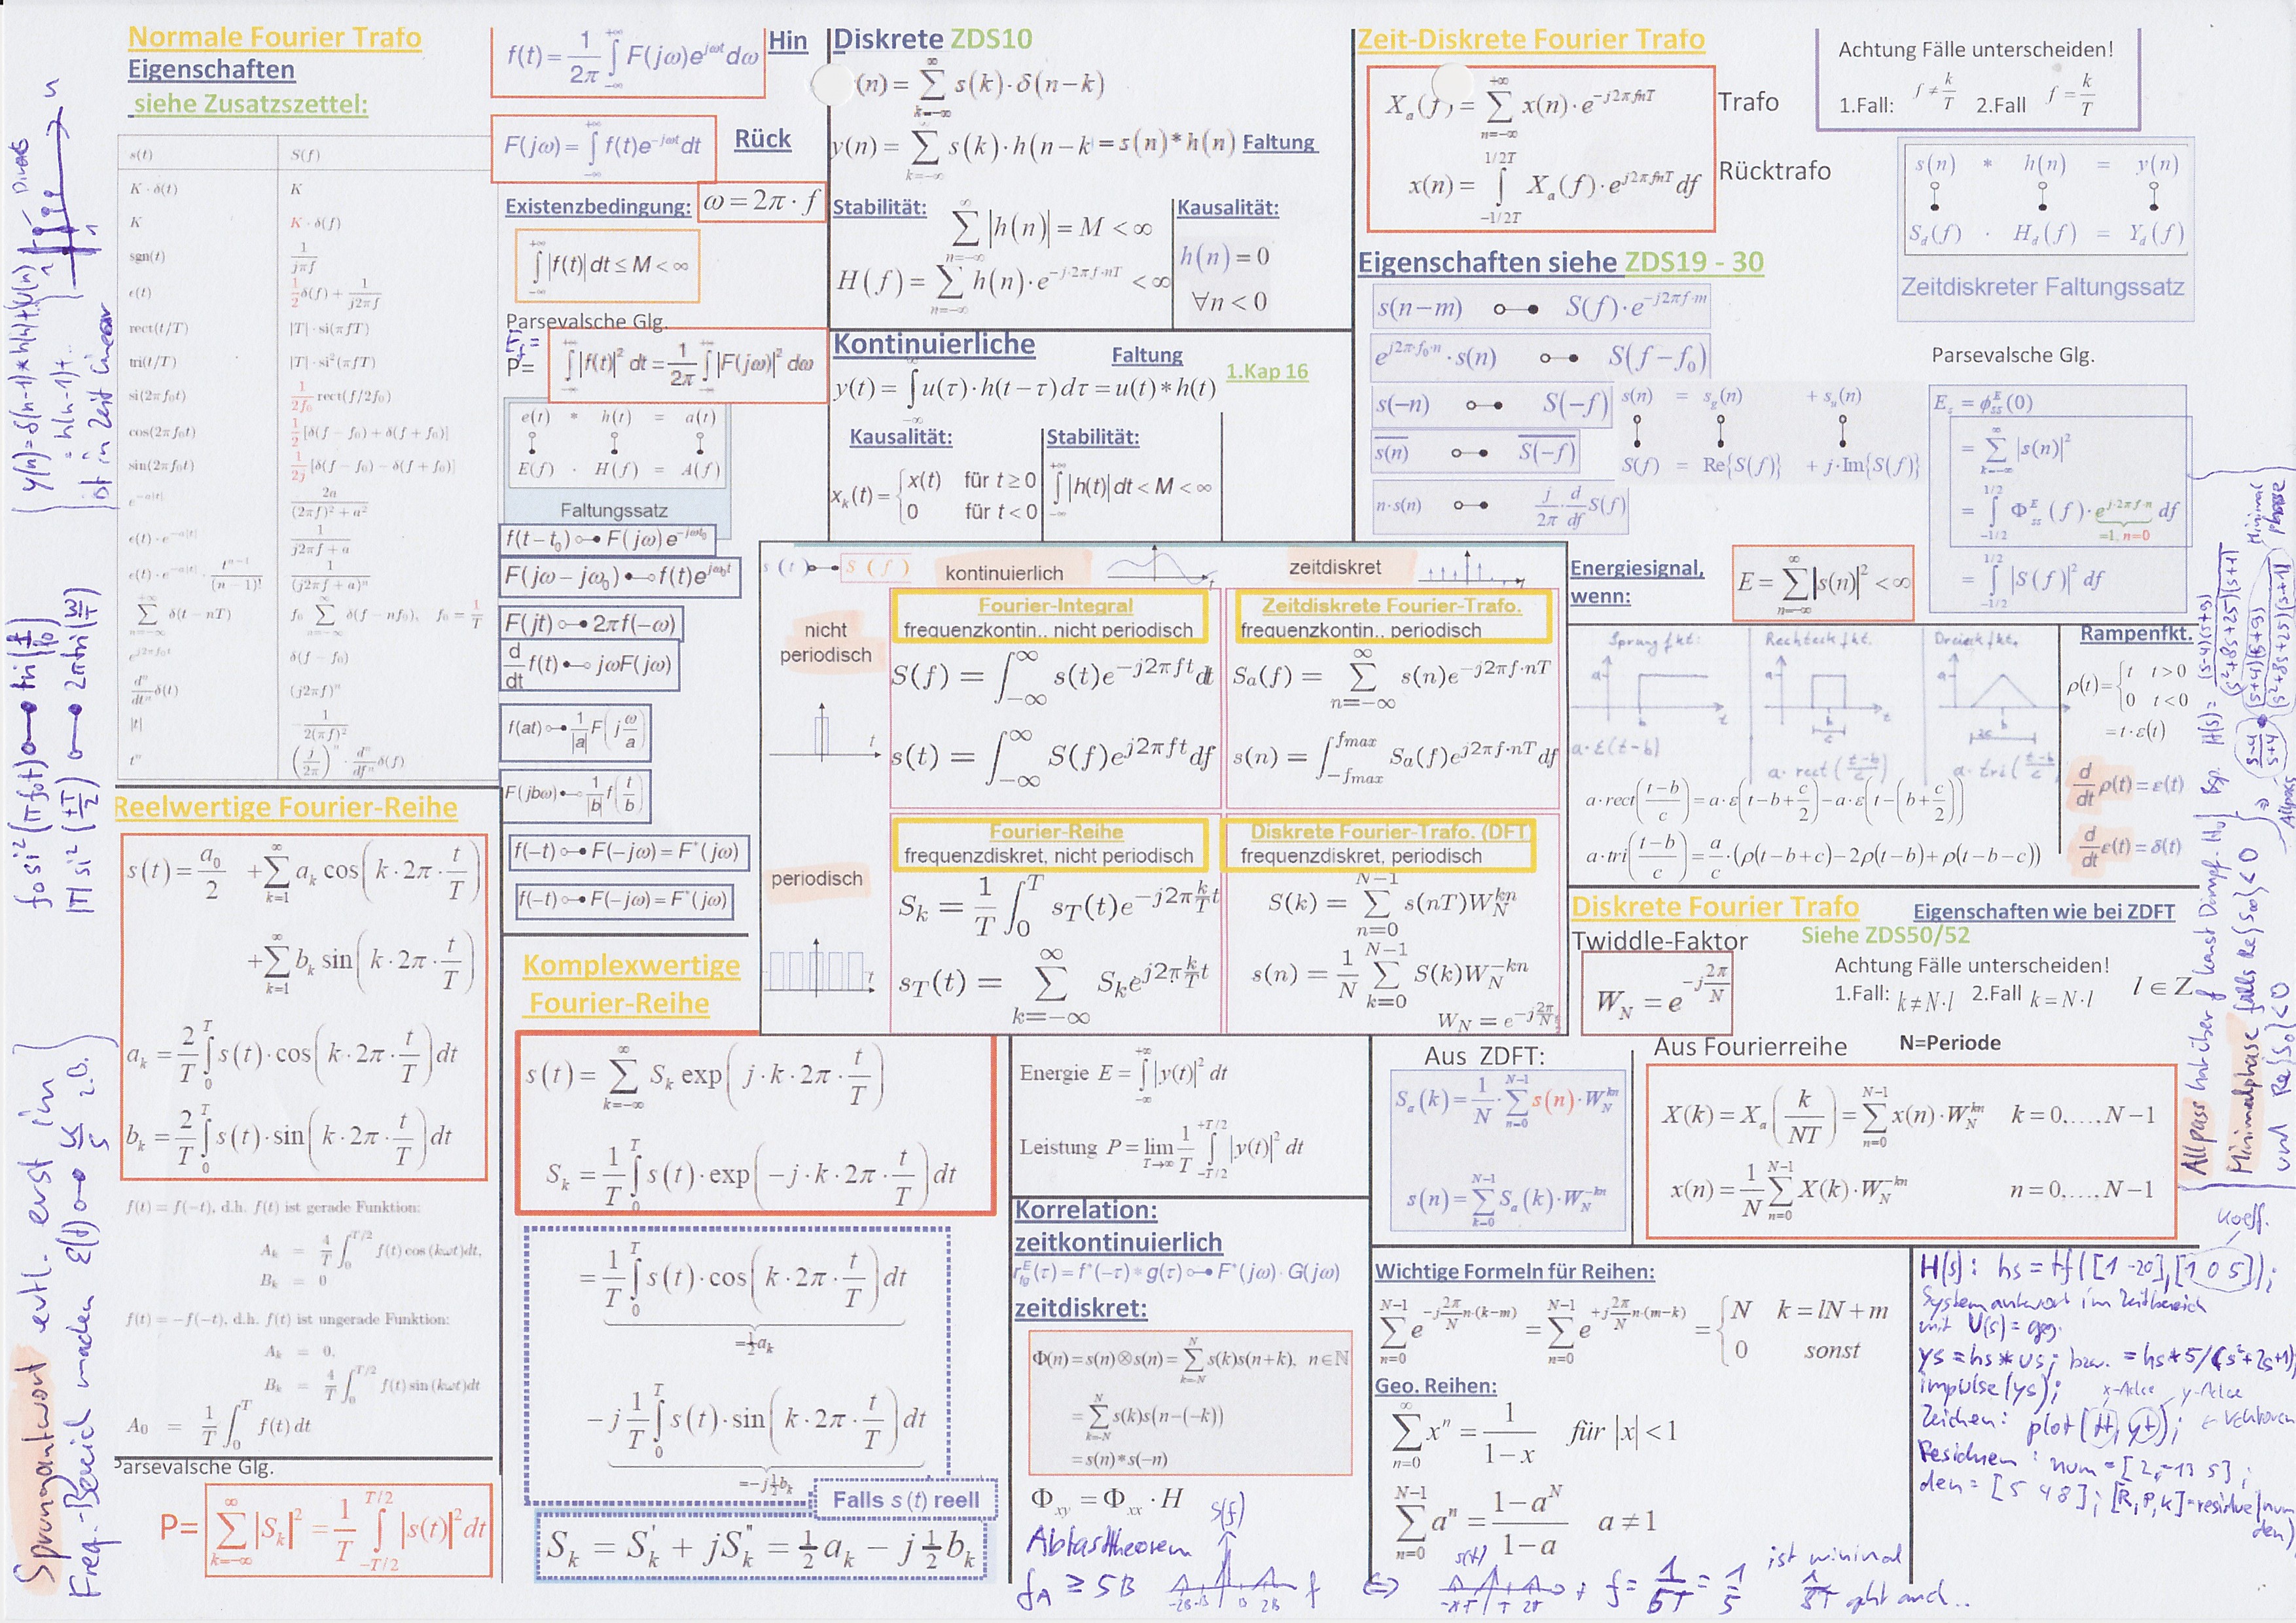 Normale Fourier Trafo
Eigenschaften
siehe Zusatszettel:
s(t) S(f)
K · δ(t) K
K K · δ(f)
sgn(t) 1/(jπf)
ε(t) 1/2 δ(f) + 1/(j2πf)
rect(t/T) |T| · si(πfT)
tri(t/T) |T| · si²(πfT)
si(2πf₀t) 1/(2f₀) rect(f/2f₀)
cos(2πf₀t) 1/2 [δ(f − f₀) + δ(f + f₀)]
sin(2πf₀t) 1/(2j) [δ(f − f₀) − δ(f + f₀)]
e^(−a|t|) 2a/((2πf)² + a²)
ε(t) · e^(−a|t|) 1/(j2πf + a)
ε(t) · e^(−a|t|) · t^(n−1)/(n−1)! 1/(j2πf + a)ⁿ
∑_{n=−∞}^{+∞} δ(t − nT) f₀ ∑_{n=−∞}^{∞} δ(f − nf₀), f₀ = 1/T
e^(j2πf₀t) δ(f − f₀)
dⁿ/dtⁿ δ(t) (j2πf)ⁿ
|t| −1/(2(πf)²)
tⁿ (j/2π)ⁿ · dⁿ/dfⁿ δ(f)
f(t) = 1/2π ∫_{−∞}^{+∞} F(jω)e^{jωt}dω Hin
F(jω) = ∫_{−∞}^{+∞} f(t)e^{−jωt}dt Rück
Existenzbedingung: ω = 2π · f
∫_{−∞}^{+∞} |f(t)| dt ≤ M < ∞
Parsevalsche Glg.
P= ∫_{−∞}^{+∞} |f(t)|² dt = 1/2π ∫_{−∞}^{+∞} |F(jω)|² dω
e(t) * h(t) = a(t)
E(f) · H(f) = A(f)
Faltungssatz
f(t−t₀) ○─● F(jω)e^{−jωt₀}
F(jω−jω₀) ●─○ f(t)e^{jω₀t}
F(jt) ○─● 2πf(−ω)
d/dt f(t) ●─○ jωF(jω)
f(at) ○─● 1/|a| F(j ω/a)
F(jbω) ●─○ 1/|b| f(t/b)
f(−t) ○─● F(−jω) = F*(jω)
f(−t) ○─● F(−jω) = F*(jω)
Diskrete ZDS10
(n) = ∑_{k=−∞}^{∞} s(k)·δ(n−k)
y(n) = ∑_{k=−∞}^{∞} s(k)·h(n−k) = s(n)*h(n) Faltung
Stabilität:
∑_{n=−∞}^{∞} |h(n)| = M < ∞
H(f) = ∑_{n=−∞} h(n)·e^{−j·2πf·nT} < ∞
Kausalität:
h(n) = 0
∀n < 0
Kontinuierliche
Faltung
y(t) = ∫_{−∞}^{∞} u(τ)·h(t−τ)dτ = u(t)*h(t) 1.Kap 16
Kausalität:
x_k(t) = { x(t) für t ≥ 0
0 für t < 0
Stabilität:
∫_{−∞}^{+∞} |h(t)| dt < M < ∞
Zeit-Diskrete Fourier Trafo
X_a(f) = ∑_{n=−∞}^{+∞} x(n)·e^{−j2πfnT} Trafo
x(n) = ∫_{−1/2T}^{1/2T} X_a(f)·e^{j2πfnT}df Rücktrafo
Achtung Fälle unterscheiden!
1.Fall: f ≠ k/T 2.Fall f = k/T
s(n) * h(n) = y(n)
S_d(f) · H_d(f) = Y_d(f)
Zeitdiskreter Faltungssatz
Eigenschaften siehe ZDS19 - 30
s(n−m) ○─● S(f)·e^{−j2πf·m}
e^{j2π·f₀·n}·s(n) ○─● S(f−f₀)
s(−n) ○─● S(−f)
s̅(̅n̅)̅ ○─● S̅(̅−̅f̅)̅
n·s(n) ○─● j/2π · d/df S(f)
s(n) = s_g(n) + s_u(n)
S(f) = Re{S(f)} + j·Im{S(f)}
Parsevalsche Glg.
E_s = ϕ_ss^E(0)
= ∑_{k=−∞}^{∞} |s(n)|²
= ∫_{−1/2}^{1/2} Φ_ss^E(f)·e^{j·2πf·n} df
=1, n=0
= ∫_{−1/2}^{1/2} |S(f)|² df
Energiesignal, wenn:
E = ∑_{n=−∞}^{∞} |s(n)|² < ∞
s(t) ○─● S(f) kontinuierlich zeitdiskret
nicht periodisch
Fourier-Integral
frequenzkontin., nicht periodisch
S(f) = ∫_{−∞}^{∞} s(t)e^{−j2πft}dt
s(t) = ∫_{−∞}^{∞} S(f)e^{j2πft}df
Zeitdiskrete Fourier-Trafo.
frequenzkontin., periodisch
S_a(f) = ∑_{n=−∞}^{∞} s(n)e^{−j2πf·nT}
s(n) = ∫_{−fmax}^{fmax} S_a(f)e^{j2πf·nT}df
periodisch
Fourier-Reihe
frequenzdiskret, nicht periodisch
S_k = 1/T ∫_0^T s_T(t)e^{−j2π k/T t}
s_T(t) = ∑_{k=−∞}^{∞} S_k e^{j2π k/T t}
Diskrete Fourier-Trafo. (DFT
frequenzdiskret, periodisch
S(k) = ∑_{n=0}^{N−1} s(nT)W_N^{kn}
s(n) = 1/N ∑_{k=0}^{N−1} S(k)W_N^{−kn}
W_N = e^{−j 2π/N}
Sprungfkt: Rechteckfkt. Dreieckfkt.
a·ε(t−b) a·rect((t−b)/c) a·tri((t−b)/c)
a·rect((t−b)/c) = a·ε(t−b+c/2)−a·ε(t−(b+c/2))
a·tri((t−b)/c) = a/c·(ρ(t−b+c)−2ρ(t−b)+ρ(t−b−c))
Rampenfkt.
ρ(t) = { t t>0
0 t<0
= t·ε(t)
d/dt ρ(t) = ε(t)
d/dt ε(t) = δ(t)
Reelwertige Fourier-Reihe
s(t) = a₀/2 + ∑_{k=1}^{∞} a_k cos(k·2π·t/T)
+ ∑_{k=1}^{∞} b_k sin(k·2π·t/T)
a_k = 2/T ∫_0^T s(t)·cos(k·2π·t/T)dt
b_k = 2/T ∫_0^T s(t)·sin(k·2π·t/T)dt
f(t) = f(−t), d.h. f(t) ist gerade Funktion:
A_k = 4/T ∫_0^{T/2} f(t) cos (kωt)dt,
B_k = 0
f(t) = −f(−t), d.h. f(t) ist ungerade Funktion:
A_k = 0,
B_k = 4/T ∫_0^{T/2} f(t) sin (kωt)dt
A₀ = 1/T ∫_0^T f(t) dt
Parsevalsche Glg.
P= ∑_{k=−∞}^{∞} |S_k|² = 1/T ∫_{−T/2}^{T/2} |s(t)|² dt
Komplexwertige
Fourier-Reihe
s(t) = ∑_{k=−∞}^{∞} S_k exp(j·k·2π·t/T)
S_k = 1/T ∫_0^T s(t)·exp(−j·k·2π·t/T)dt
= 1/T ∫_0^T s(t)·cos(k·2π·t/T)dt
=½a_k
−j 1/T ∫_0^T s(t)·sin(k·2π·t/T)dt
=−j½b_k
Falls s(t) reell
S_k = S_k' + jS_k'' = ½ a_k − j ½ b_k
Energie E = ∫_{−∞}^{+∞} |y(t)|² dt
Leistung P = lim_{T→∞} 1/T ∫_{−T/2}^{+T/2} |y(t)|² dt
Korrelation:
zeitkontinuierlich
r_fg^E(τ) = f*(−τ)*g(τ) ○─● F*(jω)·G(jω)
zeitdiskret:
Φ(n) = s(n)⊗s(n) = ∑_{k=−N}^{N} s(k)s(n+k), n∈ℕ
= ∑_{k=−N}^{N} s(k)s(n−(−k))
= s(n)*s(−n)
Φ_xy = Φ_xx · H
Abtasttheorem
f_A ≥ 5B
S(f)
-2B -B B 2B f
⇔ s(t)
T 2T
f = 1/5T = 1/5
ist minimal
1/8T geht auch..
Diskrete Fourier Trafo Eigenschaften wie bei ZDFT
Twiddle-Faktor Siehe ZDS50/52
W_N = e^{−j 2π/N}
Achtung Fälle unterscheiden!
1.Fall: k≠N·l 2.Fall k=N·l l ∈ Z
Aus ZDFT:
S_a(k) = 1/N · ∑_{n=0}^{N−1} s(n)·W_N^{kn}
s(n) = ∑_{k=0}^{N−1} S_a(k)·W_N^{−kn}
Aus Fourierreihe N=Periode
X(k) = X_a(k/NT) = ∑_{n=0}^{N−1} x(n)·W_N^{kn} k = 0,…,N−1
x(n) = 1/N ∑_{n=0}^{N−1} X(k)·W_N^{−kn} n = 0,…,N−1
Wichtige Formeln für Reihen:
∑_{n=0}^{N−1} e^{−j 2π/N n·(k−m)} = ∑_{n=0}^{N−1} e^{+j 2π/N n·(m−k)} = { N k = lN + m
0 sonst
Geo. Reihen:
∑_{n=0}^{∞} xⁿ = 1/(1−x) für |x| < 1
∑_{n=0}^{N−1} aⁿ = (1−a^N)/(1−a) a ≠ 1
Koeff.
H(s): hs = tf([1 -20],[1 0 5]);
Systemantwort im Zeitbereich
mit U(s) = geg.
ys = hs*us; bzw. = hs*5/(s²+2s+1)
impulse(ys); x-Achse y-Achse
Zeichen: plot(tt, yt); ← Vektoren
Residuen: num = [2 -13 5];
den = [5 4 8]; [R,P,k]=residue(num
den)
y(n) = δ(n-1)*h(n)+U(n)
= h(n-1)+..
ist in Zeit linear
f₀si²(πf₀t) ○─● tri(f/f₀)
|T| si²(tT/2) ○─● 2π tri(ω/T)
Sprungantwort evtl. erst im
Freq.-Bereich machen ε(t) ○─● 1/s z.B.
Allpass hat über f konst Dämpf. |H₀|
Minimalphase falls Re{s∞}<0
und Re{s₀}<0
Bsp. H(s) = (s-4)(s+9)/((s²+8s+25)(s+1))
(s-4)/(s+4) · (s+4)(s+9)/((s²+8s+25)(s+1))
Allpass
Minimal
phase